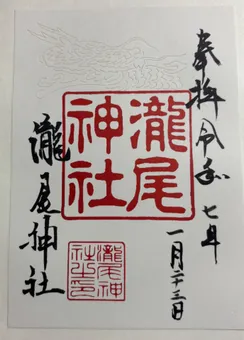 奉拝 令和七年
一月二十三日
瀧尾神社
瀧尾神社
瀧尾神社之印